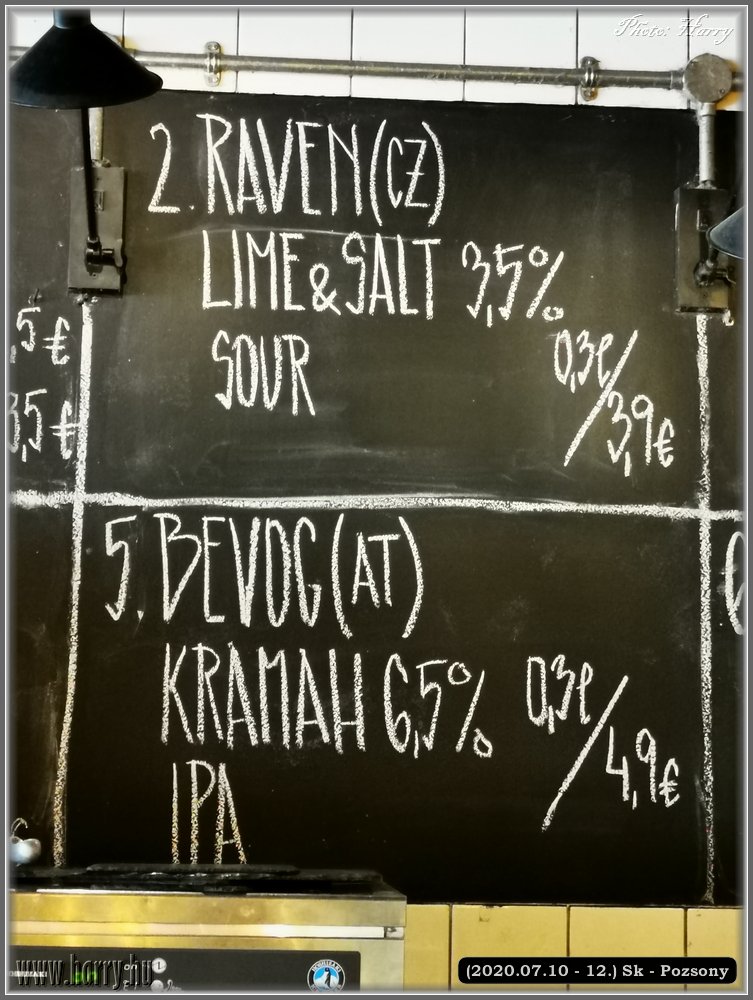 Photo: Harry
2. RAVEN (CZ)
LIME & SALT 3,5%
SOUR
0,3l/3,9€
,5 €
3,5 €
5. BEVOG (AT)
KRAMAH 6,5%
0,3l/4,9€
IPA
www.harry.hu
(2020.07.10 - 12.) Sk - Pozsony